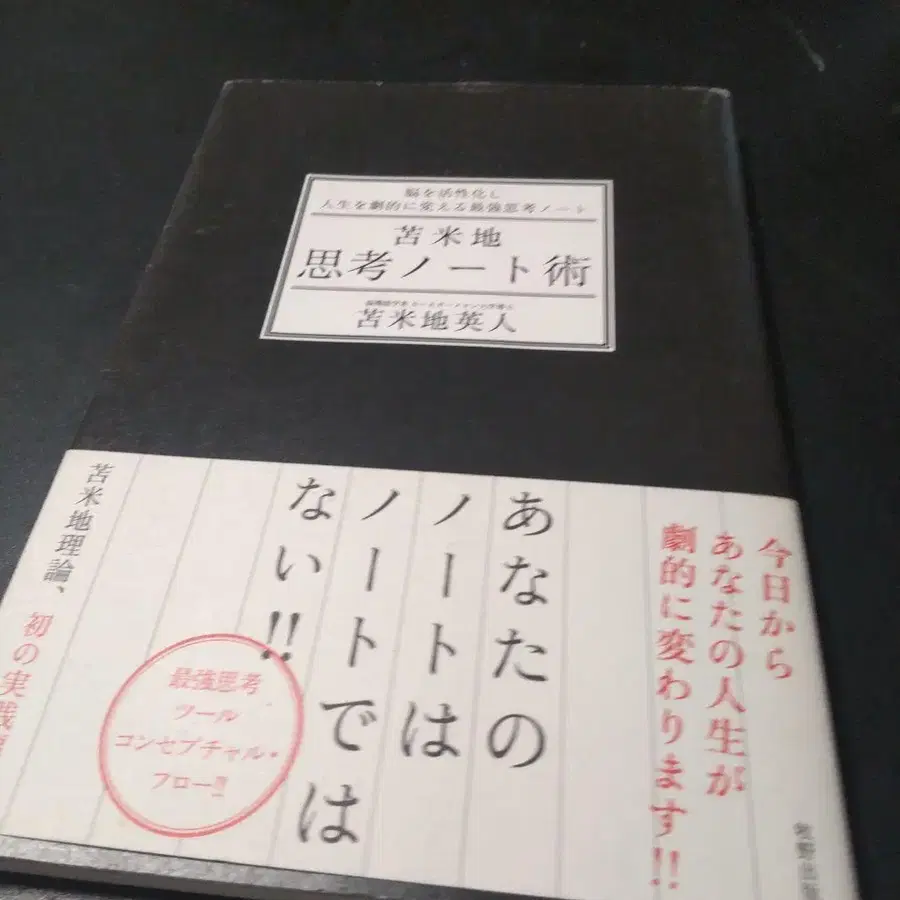 脳を活性化し
人生を劇的に変える最強思考ノート
苫米地
思考ノート術
苫米地英人
今日から
あなたの人生が
劇的に変わります!!
あなたの
ノートは
ノートでは
ない!!
最強思考
ツール
コンセプチャル・
フロー!!
苫米地理論、
初の実践
牧野出版